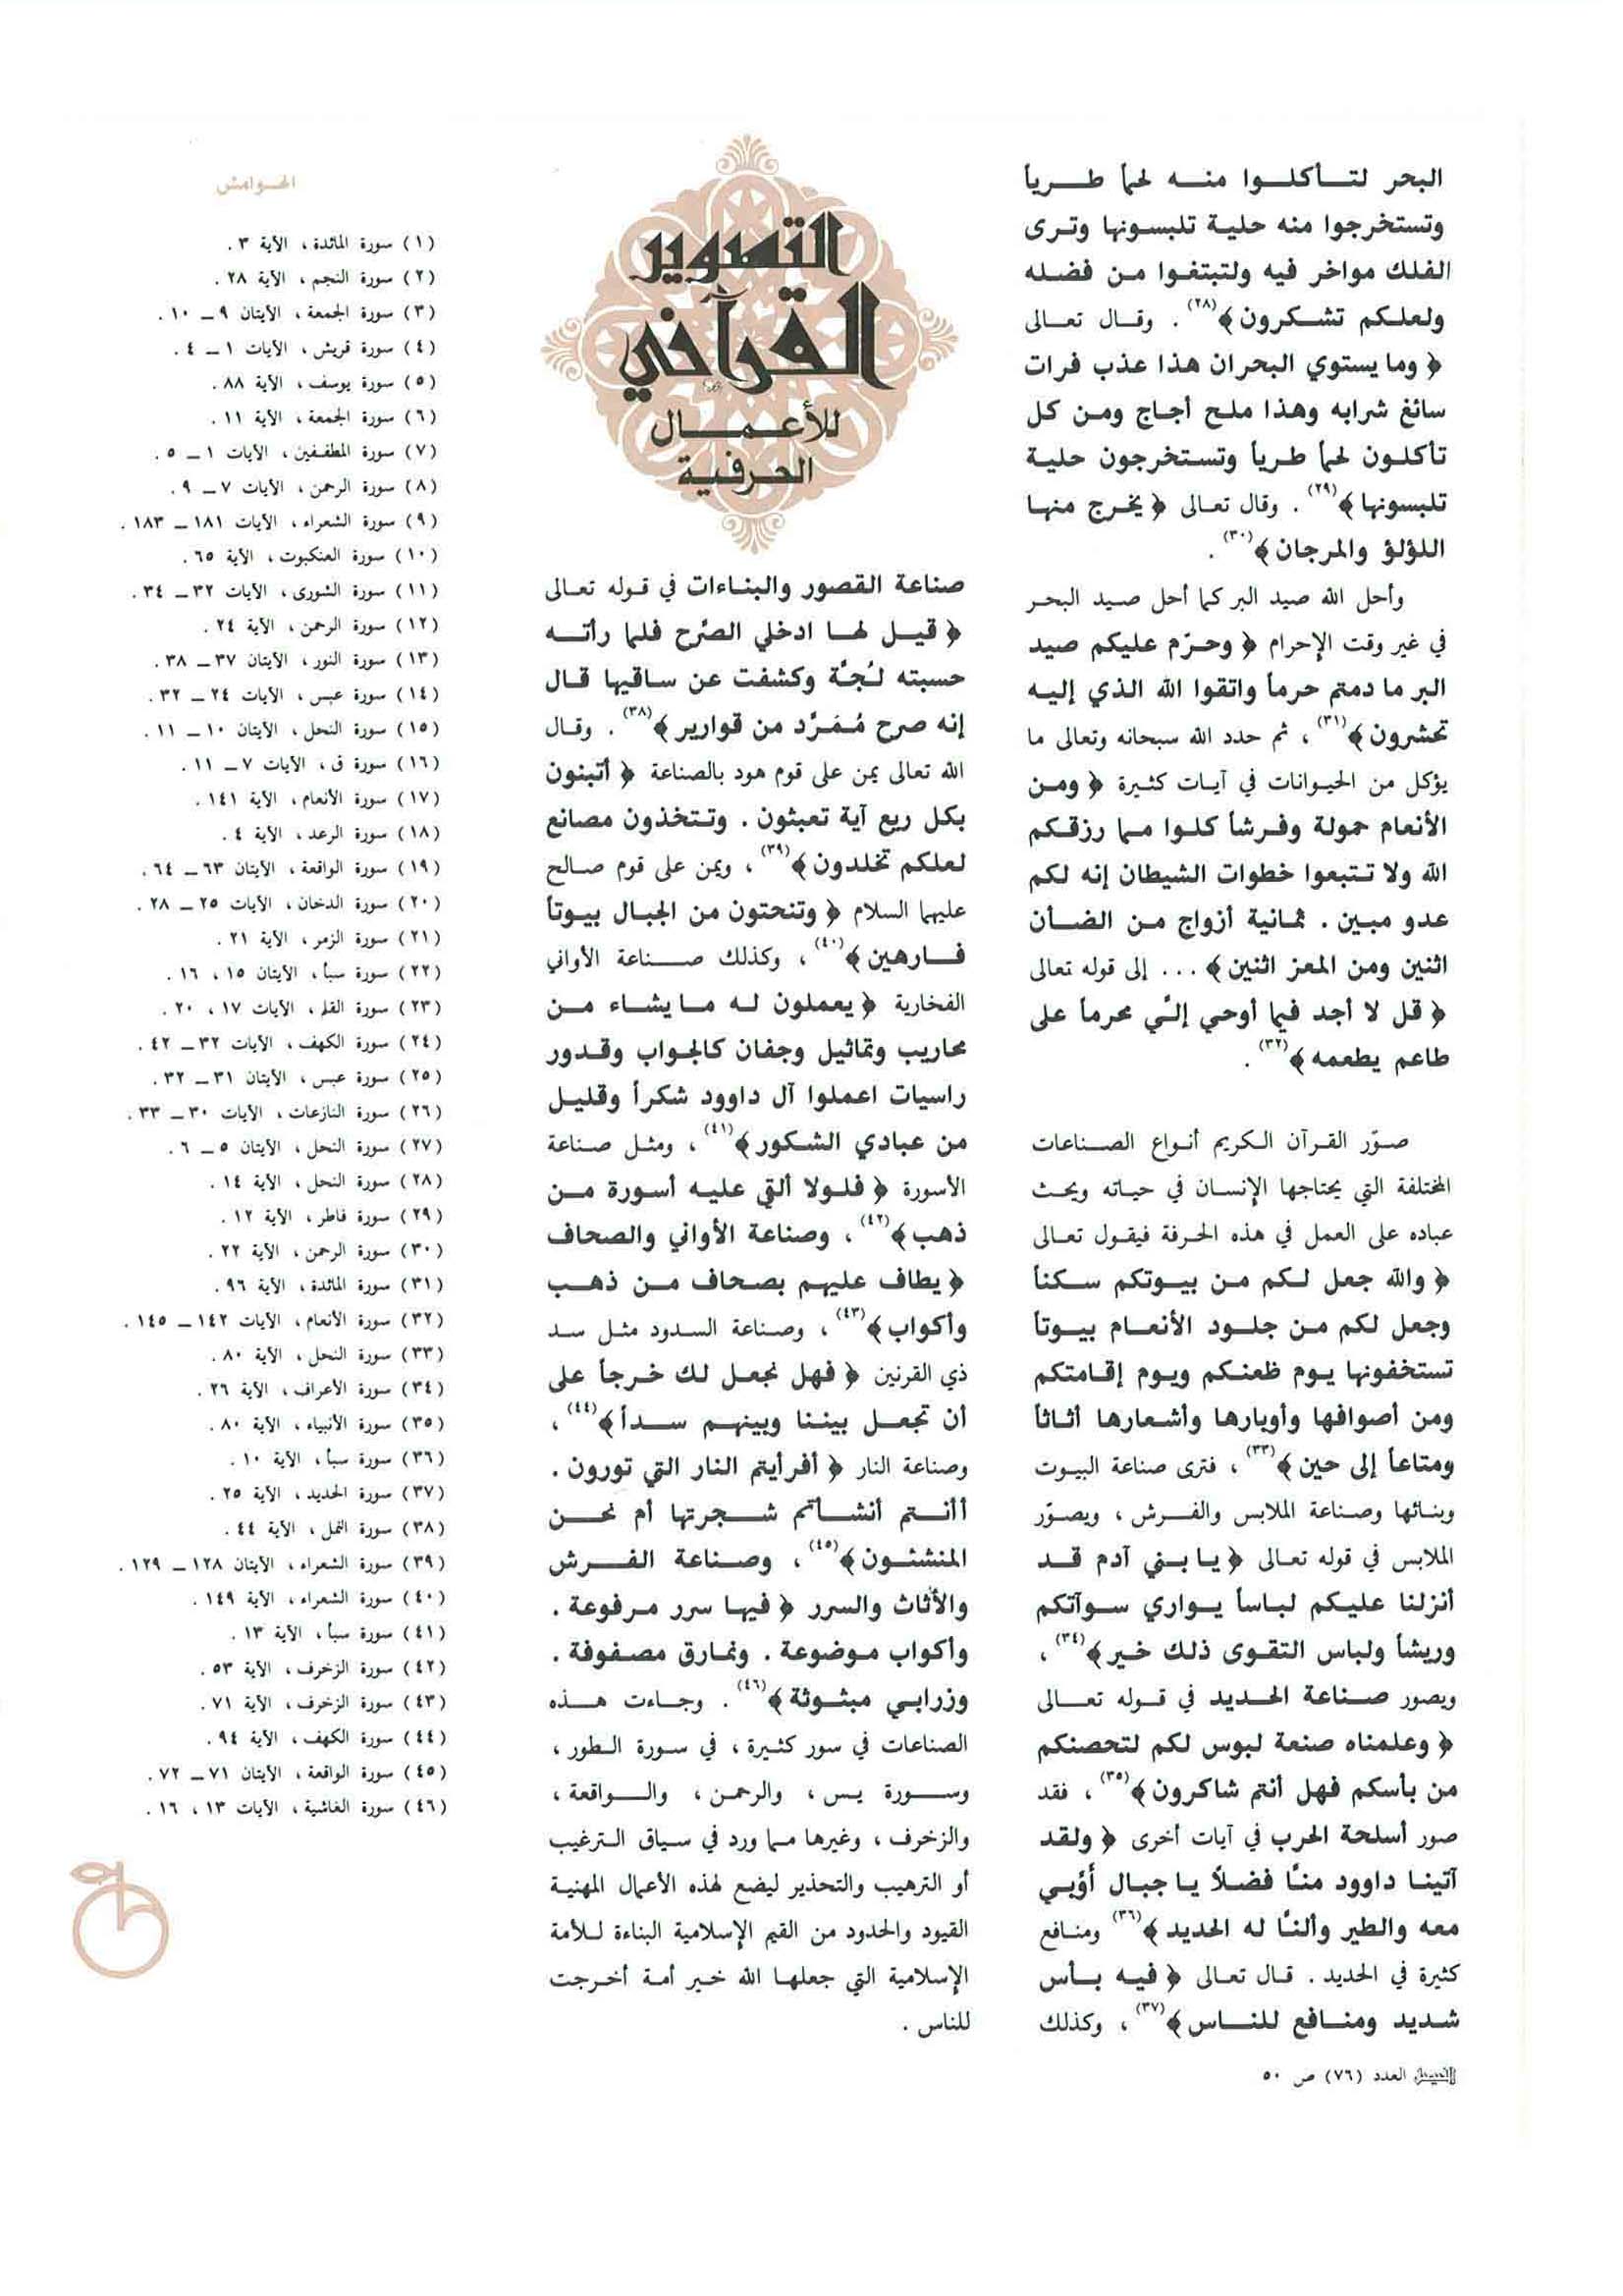 البحر لتأكلوا منه لحما طرياً
وتستخرجوا منه حلية تلبسونها وترى
الفلك مواخر فيه ولتبتغوا من فضله
ولعلكم تشكرون﴾(٢٨) . وقال تعالى
﴿ وما يستوي البحران هذا عذب فرات
سائغ شرابه وهذا ملح أجاج ومن كل
تأكلون لحما طرياً وتستخرجون حلية
تلبسونها﴾(٢٩) . وقال تعالى ﴿ يخرج منها
اللؤلؤ والمرجان﴾(٣٠) .
وأحل الله صيد البر كما أحل صيد البحر
في غير وقت الإحرام ﴿ وحرّم عليكم صيد
البر ما دمتم حرماً واتقوا الله الذي إليه
تحشرون﴾(٣١) ، ثم حدد الله سبحانه وتعالى ما
يؤكل من الحيوانات في آيات كثيرة ﴿ ومن
الأنعام حمولة وفرشاً كلوا مما رزقكم
الله ولا تتبعوا خطوات الشيطان إنه لكم
عدو مبين . ثمانية أزواج من الضأن
اثنين ومن المعز اثنين﴾ ... إلى قوله تعالى
﴿ قل لا أجد فيما أوحي إليّ محرماً على
طاعم يطعمه﴾(٣٢) .
صوّر القرآن الكريم أنواع الصناعات
المختلفة التي يحتاجها الإنسان في حياته ويحث
عباده على العمل في هذه الحرفة فيقول تعالى
﴿ والله جعل لكم من بيوتكم سكناً
وجعل لكم من جلود الأنعام بيوتاً
تستخفونها يوم ظعنكم ويوم إقامتكم
ومن أصوافها وأوبارها وأشعارها أثاثاً
ومتاعاً إلى حين﴾(٣٣) ، فترى صناعة البيوت
وبنائها وصناعة الملابس والفرش ، ويصوّر
الملابس في قوله تعالى ﴿ يا بني آدم قد
أنزلنا عليكم لباساً يواري سوآتكم
وريشاً ولباس التقوى ذلك خير﴾(٣٤) ،
ويصور صناعة الحديد في قوله تعالى
﴿ وعلمناه صنعة لبوس لكم لتحصنكم
من بأسكم فهل أنتم شاكرون﴾(٣٥) ، فقد
صور أسلحة الحرب في آيات أخرى ﴿ ولقد
آتينا داوود منّا فضلاً يا جبال أوّبي
معه والطير وألنّا له الحديد﴾(٣٦) ومنافع
كثيرة في الحديد . قال تعالى ﴿ فيه بأس
شديد ومنافع للناس﴾(٣٧) ، وكذلك
الفيصل العدد (٧٦) ص ٥٠
التصوير
القرآني
للأعمال
الحرفية
صناعة القصور والبناءات في قوله تعالى
﴿ قيل لها ادخلي الصّرح فلما رأته
حسبته لُجّة وكشفت عن ساقيها قال
إنه صرح مُمَرّد من قوارير﴾(٣٨) . وقال
الله تعالى يمن على قوم هود بالصناعة ﴿ أتبنون
بكل ريع آية تعبثون . وتتخذون مصانع
لعلكم تخلدون﴾(٣٩) ، ويمن على قوم صالح
عليهما السلام ﴿ وتنحتون من الجبال بيوتاً
فارهين﴾(٤٠) ، وكذلك صناعة الأواني
الفخارية ﴿ يعملون له ما يشاء من
محاريب وتماثيل وجفان كالجواب وقدور
راسيات اعملوا آل داوود شكراً وقليل
من عبادي الشكور﴾(٤١) ، ومثل صناعة
الأسورة ﴿ فلولا ألقي عليه أسورة من
ذهب﴾(٤٢) ، وصناعة الأواني والصحاف
﴿ يطاف عليهم بصحاف من ذهب
وأكواب﴾(٤٣) ، وصناعة السدود مثل سد
ذي القرنين ﴿ فهل نجعل لك خرجاً على
أن تجعل بيننا وبينهم سداً﴾(٤٤) ،
وصناعة النار ﴿ أفرأيتم النار التي تورون .
أأنتم أنشأتم شجرتها أم نحن
المنشئون﴾(٤٥) ، وصناعة الفرش
والأثاث والسرر ﴿ فيها سرر مرفوعة .
وأكواب موضوعة . ونمارق مصفوفة .
وزرابي مبثوثة﴾(٤٦) . وجاءت هذه
الصناعات في سور كثيرة ، في سورة الطور ،
وسورة يس ، والرحمن ، والواقعة ،
والزخرف ، وغيرها مما ورد في سياق الترغيب
أو الترهيب والتحذير ليضع لهذه الأعمال المهنية
القيود والحدود من القيم الإسلامية البناءة للأمة
الإسلامية التي جعلها الله خير أمة أخرجت
للناس .
الهوامش
(١) سورة المائدة ، الآية ٣ .
(٢) سورة النجم ، الآية ٢٨ .
(٣) سورة الجمعة ، الآيتان ٩ ــ ١٠ .
(٤) سورة قريش ، الآيات ١ ــ ٤ .
(٥) سورة يوسف ، الآية ٨٨ .
(٦) سورة الجمعة ، الآية ١١ .
(٧) سورة المطففين ، الآيات ١ ــ ٥ .
(٨) سورة الرحمن ، الآيات ٧ ــ ٩ .
(٩) سورة الشعراء ، الآيات ١٨١ ــ ١٨٣ .
(١٠) سورة العنكبوت ، الآية ٦٥ .
(١١) سورة الشورى ، الآيات ٣٢ ــ ٣٤ .
(١٢) سورة الرحمن ، الآية ٢٤ .
(١٣) سورة النور ، الآيتان ٣٧ ــ ٣٨ .
(١٤) سورة عبس ، الآيات ٢٤ ــ ٣٢ .
(١٥) سورة النحل ، الآيتان ١٠ ــ ١١ .
(١٦) سورة ق ، الآيات ٧ ــ ١١ .
(١٧) سورة الأنعام ، الآية ١٤١ .
(١٨) سورة الرعد ، الآية ٤ .
(١٩) سورة الواقعة ، الآيتان ٦٣ ــ ٦٤ .
(٢٠) سورة الدخان ، الآيات ٢٥ ــ ٢٨ .
(٢١) سورة الزمر ، الآية ٢١ .
(٢٢) سورة سبأ ، الآيتان ١٥ ، ١٦ .
(٢٣) سورة القلم ، الآيات ١٧ ، ٢٠ .
(٢٤) سورة الكهف ، الآيات ٣٢ ــ ٤٢ .
(٢٥) سورة عبس ، الآيتان ٣١ ــ ٣٢ .
(٢٦) سورة النازعات ، الآيات ٣٠ ــ ٣٣ .
(٢٧) سورة النحل ، الآيتان ٥ ــ ٦ .
(٢٨) سورة النحل ، الآية ١٤ .
(٢٩) سورة فاطر ، الآية ١٢ .
(٣٠) سورة الرحمن ، الآية ٢٢ .
(٣١) سورة المائدة ، الآية ٩٦ .
(٣٢) سورة الأنعام ، الآيات ١٤٢ ــ ١٤٥ .
(٣٣) سورة النحل ، الآية ٨٠ .
(٣٤) سورة الأعراف ، الآية ٢٦ .
(٣٥) سورة الأنبياء ، الآية ٨٠ .
(٣٦) سورة سبأ ، الآية ١٠ .
(٣٧) سورة الحديد ، الآية ٢٥ .
(٣٨) سورة النمل ، الآية ٤٤ .
(٣٩) سورة الشعراء ، الآيتان ١٢٨ ــ ١٢٩ .
(٤٠) سورة الشعراء ، الآية ١٤٩ .
(٤١) سورة سبأ ، الآية ١٣ .
(٤٢) سورة الزخرف ، الآية ٥٣ .
(٤٣) سورة الزخرف ، الآية ٧١ .
(٤٤) سورة الكهف ، الآية ٩٤ .
(٤٥) سورة الواقعة ، الآيتان ٧١ ــ ٧٢ .
(٤٦) سورة الغاشية ، الآيات ١٣ ، ١٦ .